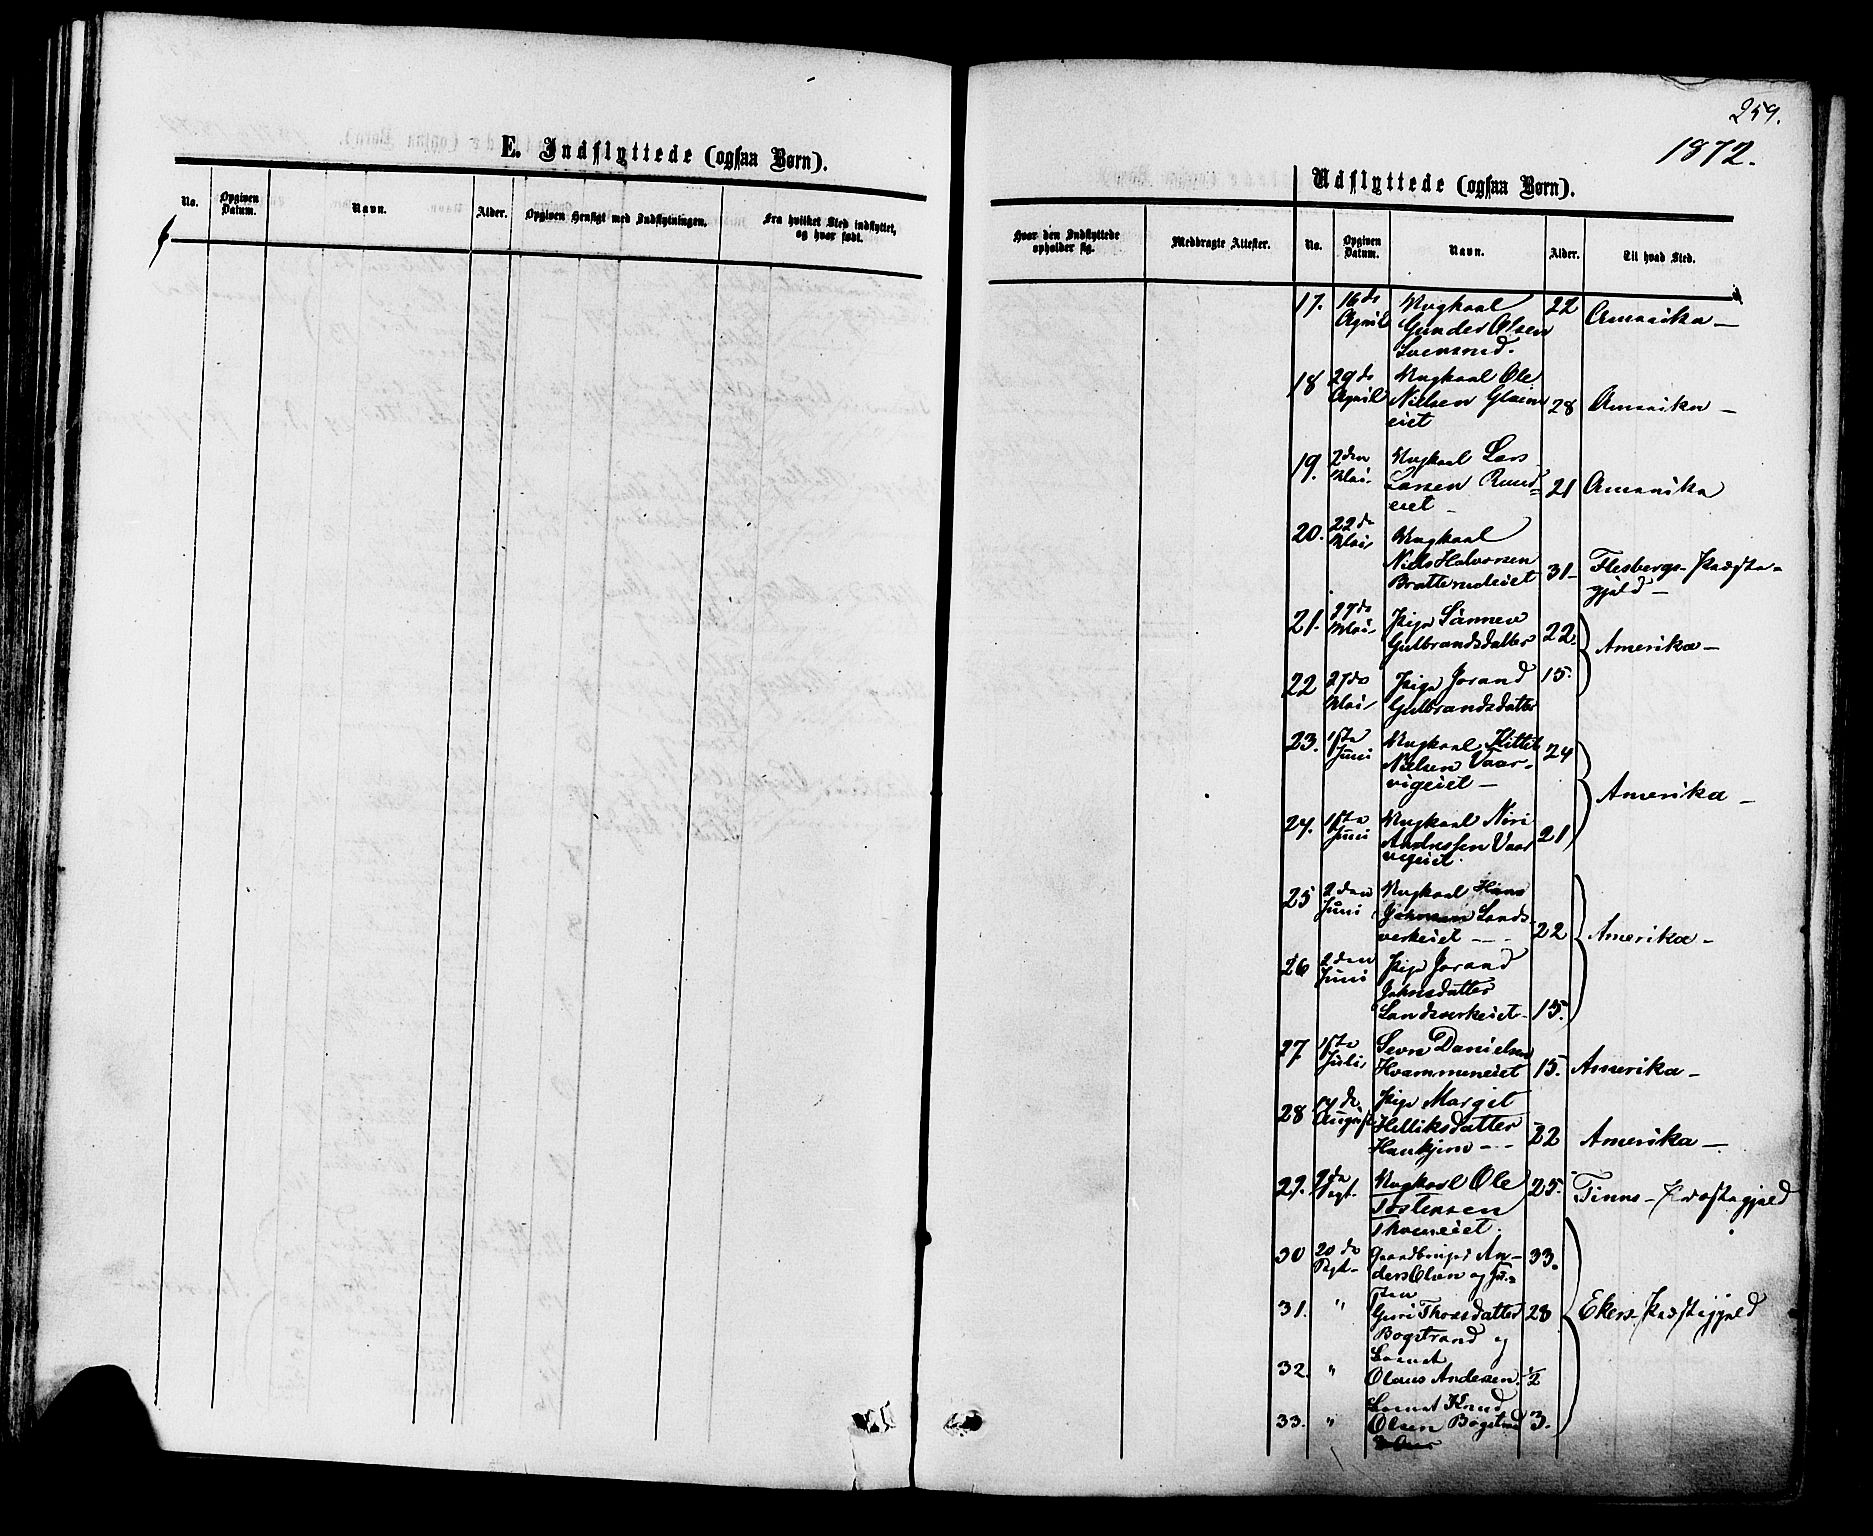 259.
1872.
E. Indflyttede (ogsaa Børn).
No.
Opgiven Datum.
Navn.
Alder.
Opgiven Hensigt med Indflytningen.
Fra hvilket Sted indflyttet, og hvor født.
Udflyttede (ogsaa Børn).
Hvor den Indflyttede opholder sig.
Medbragte Attester.
No.
Opgiven Datum.
Navn.
Alder.
Til hvad Sted.
17. 16de April Ungkarl Gunder Olsen 22 Amerika —
18 29de April Ungkarl Ole Nielsen eiet 28 Amerika —
19. 2den Mai. Ungkarl Lars Larsen Ruud= eiet — 21 Amerika
20. 22de Mai, Ungkarl Niels Halvorsen Bratterudeiet 31 — Flesbergs Præste- gjeld —
21. 27de Mai, Pige Sønnev Gulbrandsdatter 22. Amerika —
22 27de Mai, Pige Jorand Gulbrandsdatter 15.
23. 1ste Juni Ungkarl Kittil Nielsen Vaar- vigeiet — 24 Amerika —
24. 1ste Juni Ungkarl Niri Andressen Vaar vigeiet. 21
25 2den Juni Ungkarl Hans Johnsen Lands- verkeiet — 22 Amerika —
26 2den Juni Pige Jorand Johnsdatter Landsverkeiet 15.
27 1ste Juli, Sevn Danielsen Hvammeneiet 15. Amerika —
28 de August Pige Margit Helliksdatter 22 Amerika —
29. Sept. Ungkarl Ole Tostensen 25. Tinns — Præstegjeld
30 20de Sept. Gaardbruger An- ders Olsen og Hu- 33.
31. " stru Guri Thorsdatter Bogstrand og 28 Ekers Præstegjeld
32. " Barnet Olaus Andersen. ½
33. " Barnet Knud Olsen Bogstrand 3.